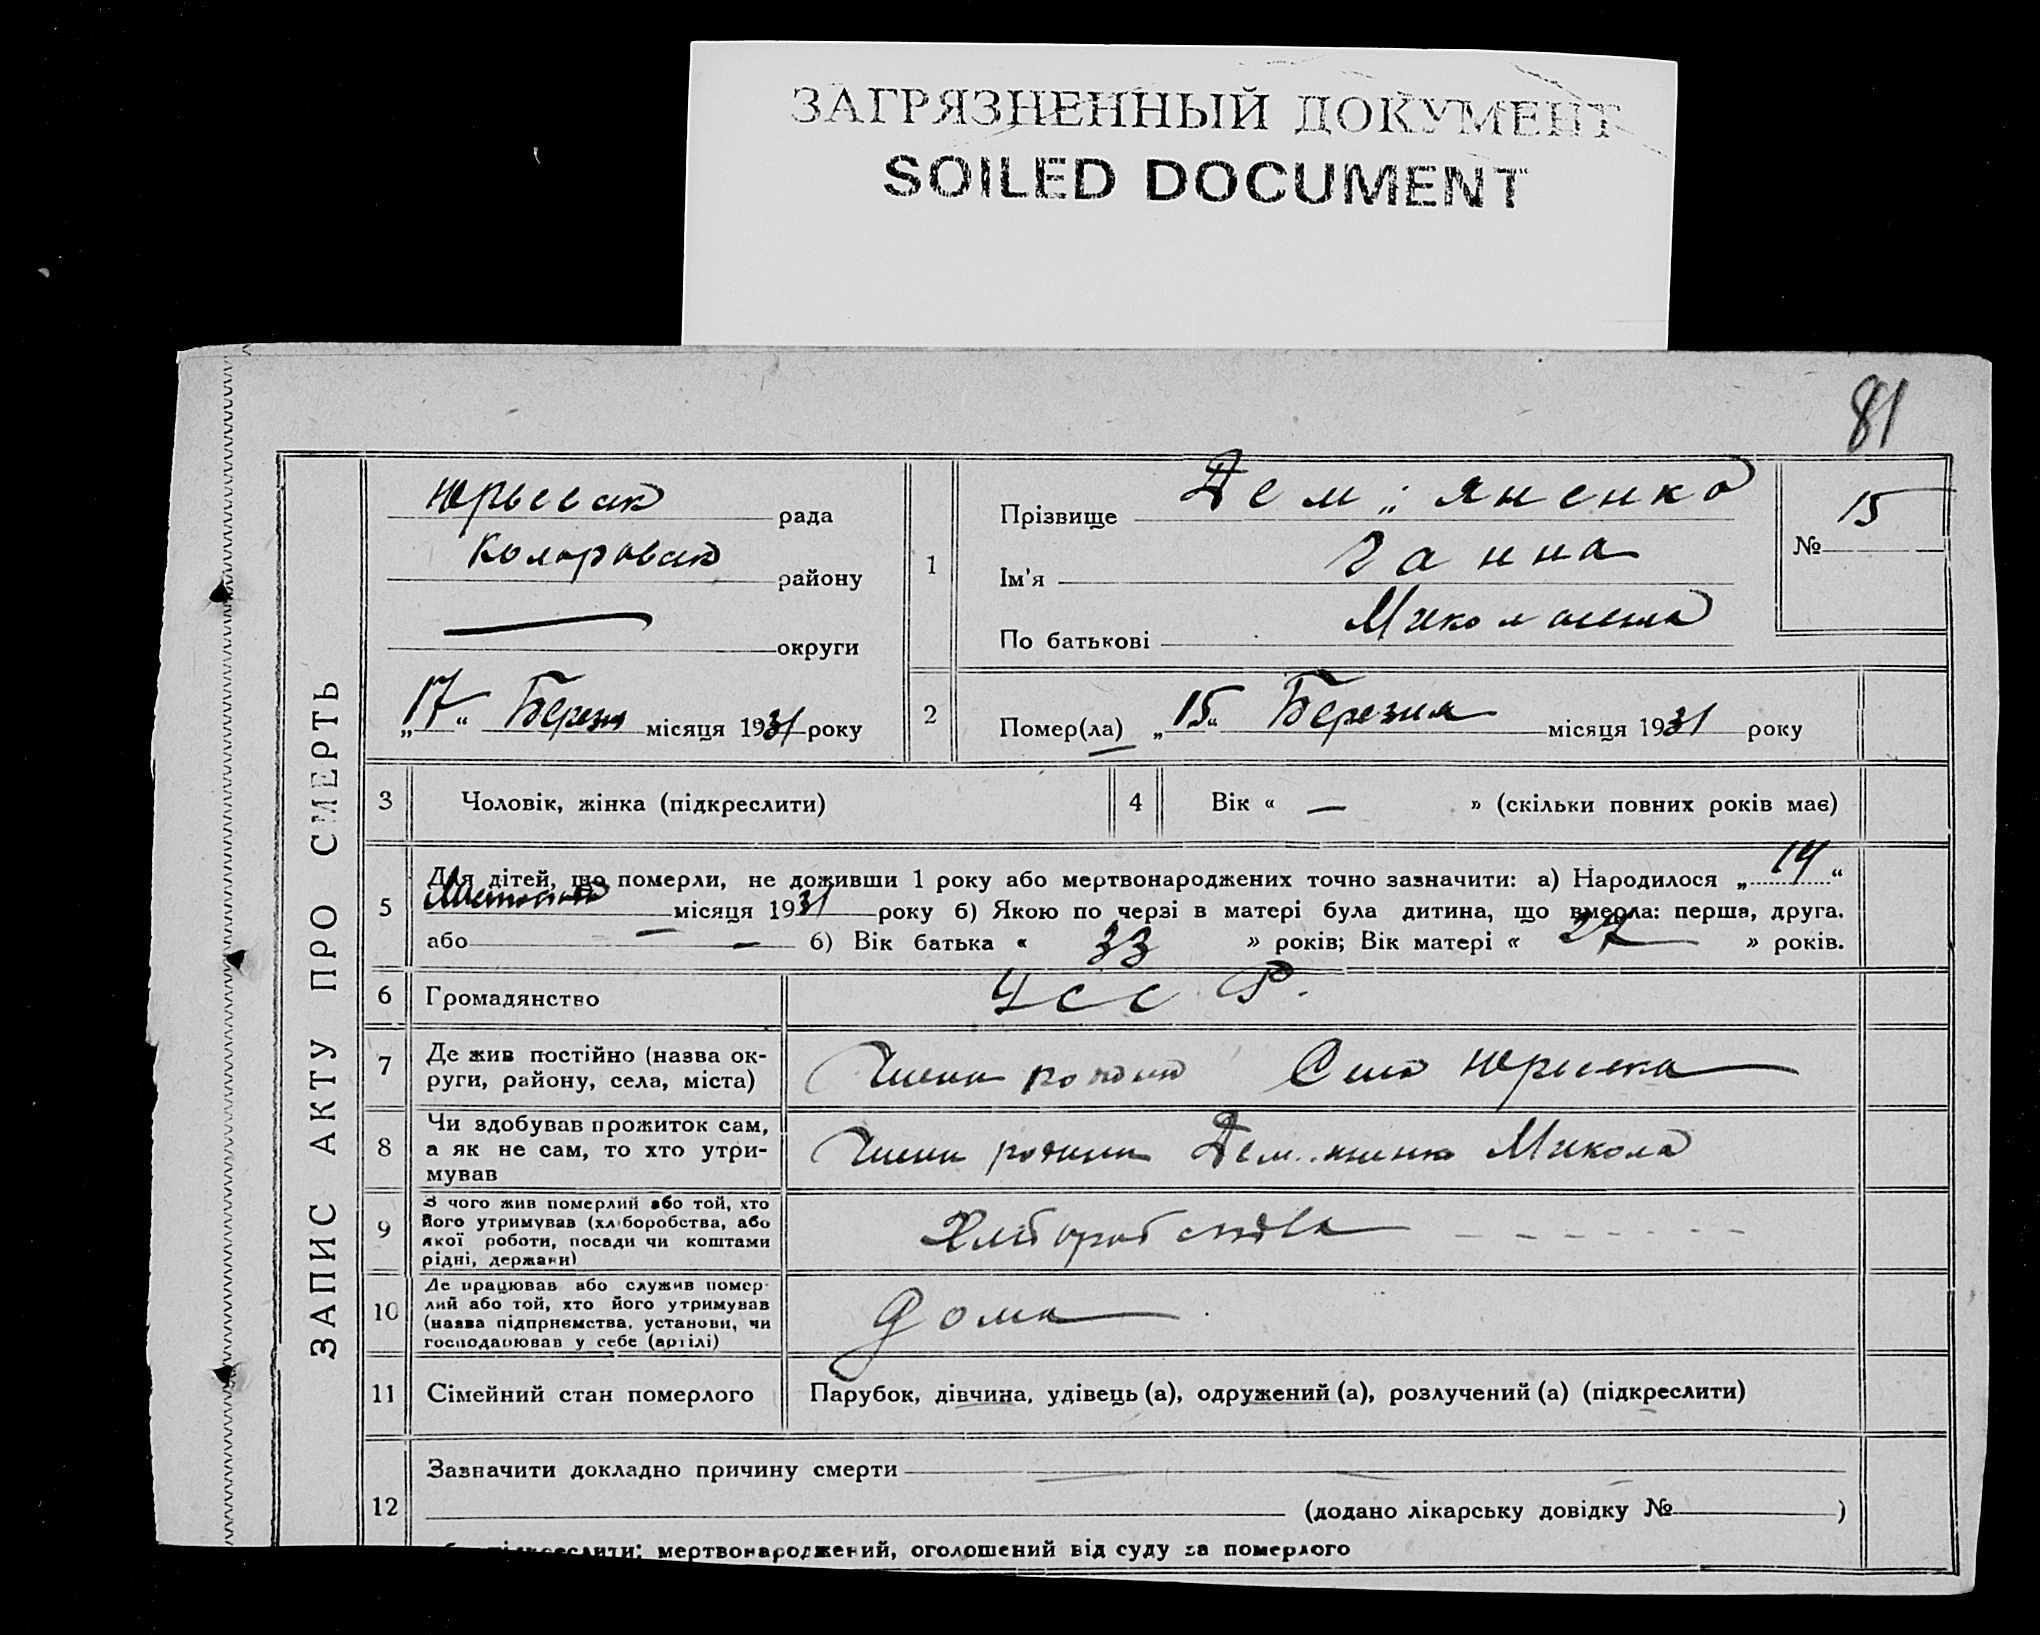 ЗАГРЯЗНЕННЫЙ ДОКУМЕНТ
SOILED DOCUMENT
81
ЗАПИС АКТУ ПРО СМЕРТЬ
рада
району
округи
„17“ Березня місяця 1931 року
1
Прізвище Дем„яненко
Ім'я Ганна
По батькові
№ 15
2
Помер(ла) „15“ Березня місяця 1931 року
3 Чоловік, жінка (підкреслити)
4 Вік « — » (скільки повних років має)
5
Для дітей, що померли, не доживши 1 року або мертвонароджених точно зазначити: а) Народилося „14“
місяця 1931 року б) Якою по черзі в матері була дитина, що вмерла: перша, друга.
або — — б) Вік батька « 33 » років; Вік матері « 27 » років.
6 Громадянство УССР.
7
Де жив постійно (назва ок-
руги, району, села, міста)
Село
8
Чи здобував прожиток сам,
а як не сам, то хто утри-
мував
Члени родини Дем..яненко Микола
9
З чого жив померлий або той, хто
його утримував (хліборобства, або
якої роботи, посади чи коштами
рідні, держави)
Хліборобства
10
Де працював або служив помер-
лий або той, хто його утримував
(назва підприємства, установи, чи
господарював у себе (артілі)
Дома
11 Сімейний стан померлого Парубок, дівчина, удівець (а), одружений (а), розлучений (а) (підкреслити)
12
Зазначити докладно причину смерти
(додано лікарську довідку № )
мертвонароджений, оголошений від суду за померлого